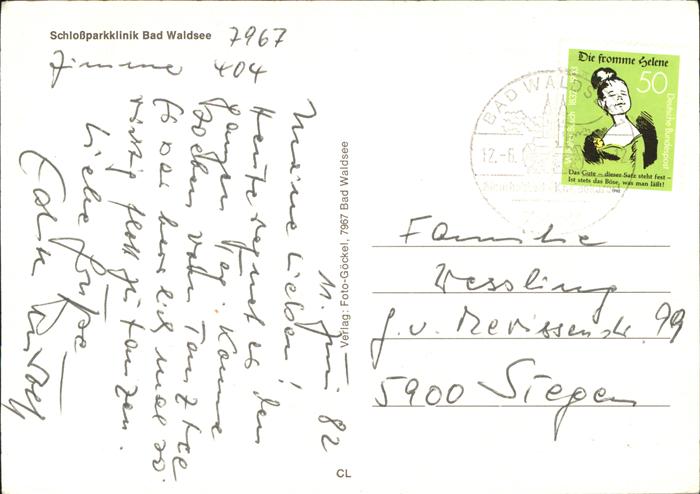 Schloßparkklinik Bad Waldsee 7967
Zimmer 404
11. Juni 82
Meine Lieben!
Heute regnet es den
ganzen Tag. Komme
soeben vom Tanztee
Es war herrlich mal so
richtig flott zu tanzen.
Liebe Grüße
Verlag: Foto-Göckel, 7967 Bad Waldsee
CL
BAD WALDS
12.-6.
Die fromme Helene
50
Deutsche Bundespost
Das Gute – dieser Satz steht fest –
Ist stets das Böse, was man läßt!
Familie
Wessling
g.v. Mevissenstr. 99
5900 Siegen